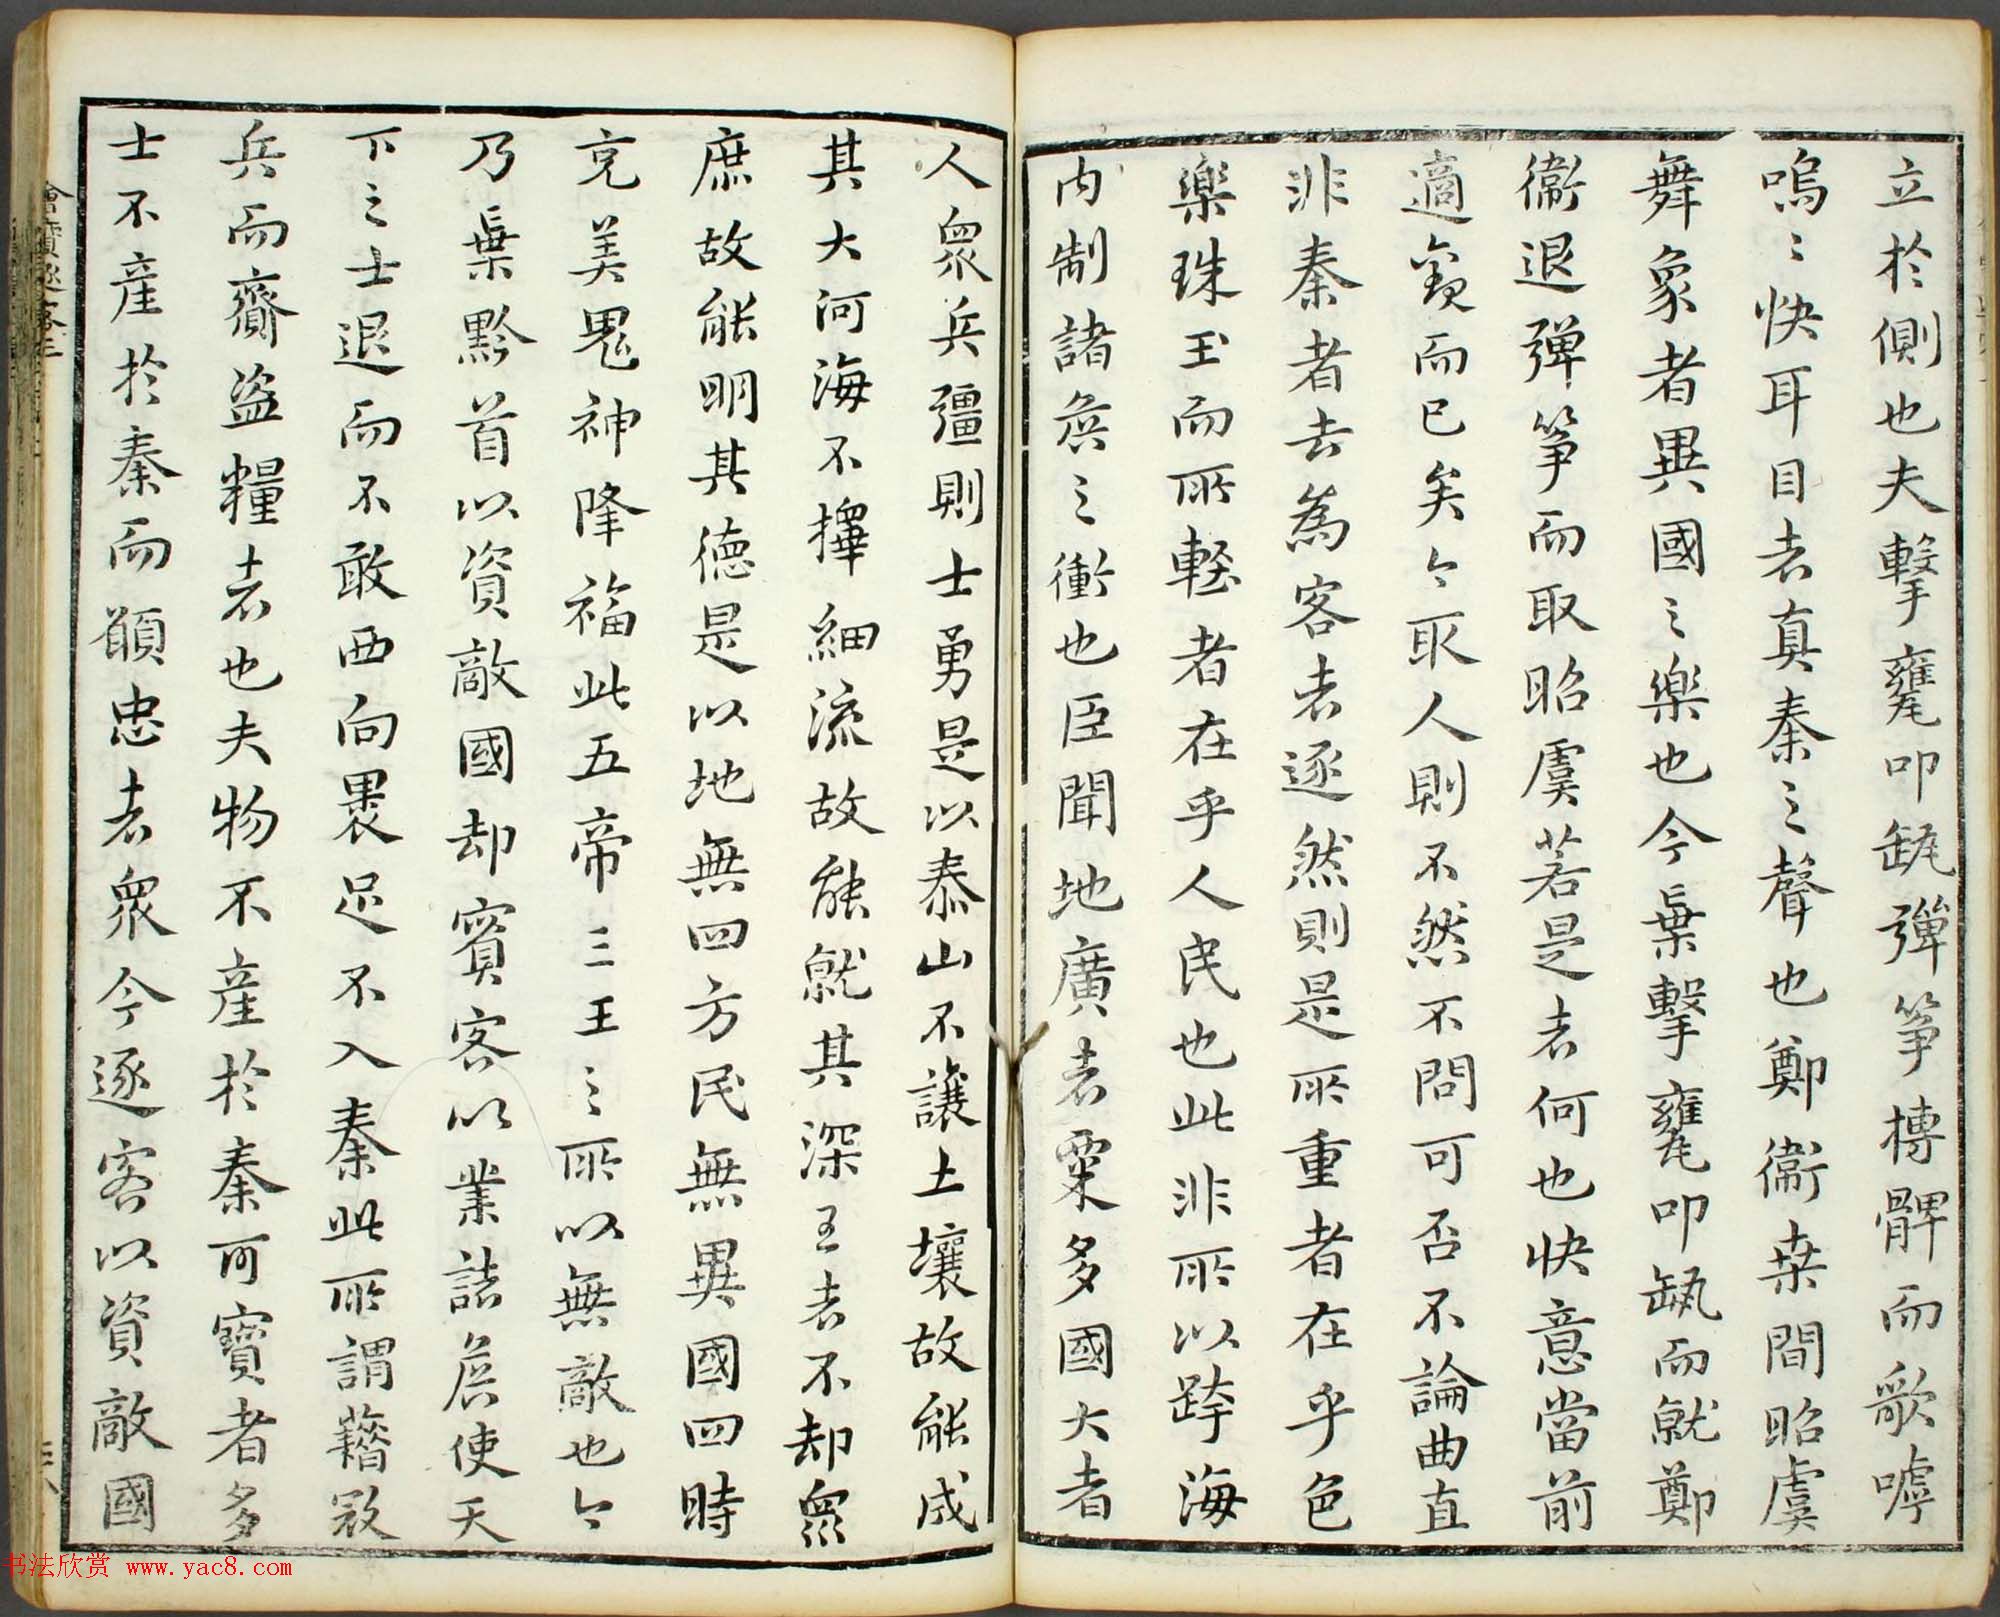 立於側也夫擊甕叩缻彈箏搏髀而歌嘑
嗚〻快耳目者真秦之聲也鄭衞桒間昭虞
舞象者異國之樂也今棄擊甕叩缻而就鄭
衞退彈箏而取昭虞若是者何也快意當前
適觀而已矣今取人則不然不問可否不論曲直
非秦者去為客者逐然則是所重者在乎色
樂珠玉而所輕者在乎人民也此非所以跨海
内制諸矦之衝也臣聞地廣者粟多國大者
人衆兵彊則士勇是以泰山不讓土壤故能成
其大河海不擇細流故能就其深王者不却衆
庶故能明其德是以地無四方民無異國四時
充美鬼神降福此五帝三王之所以無敵也今
乃棄黔首以資敵國却賓客以業諸矦使天
下之士退而不敢西向裹足不入秦此所謂藉寇
兵而齎盗糧者也夫物不產於秦可寶者多
士不產於秦而願忠者衆今逐客以資敵國
書法欣赏 www.yac8.com